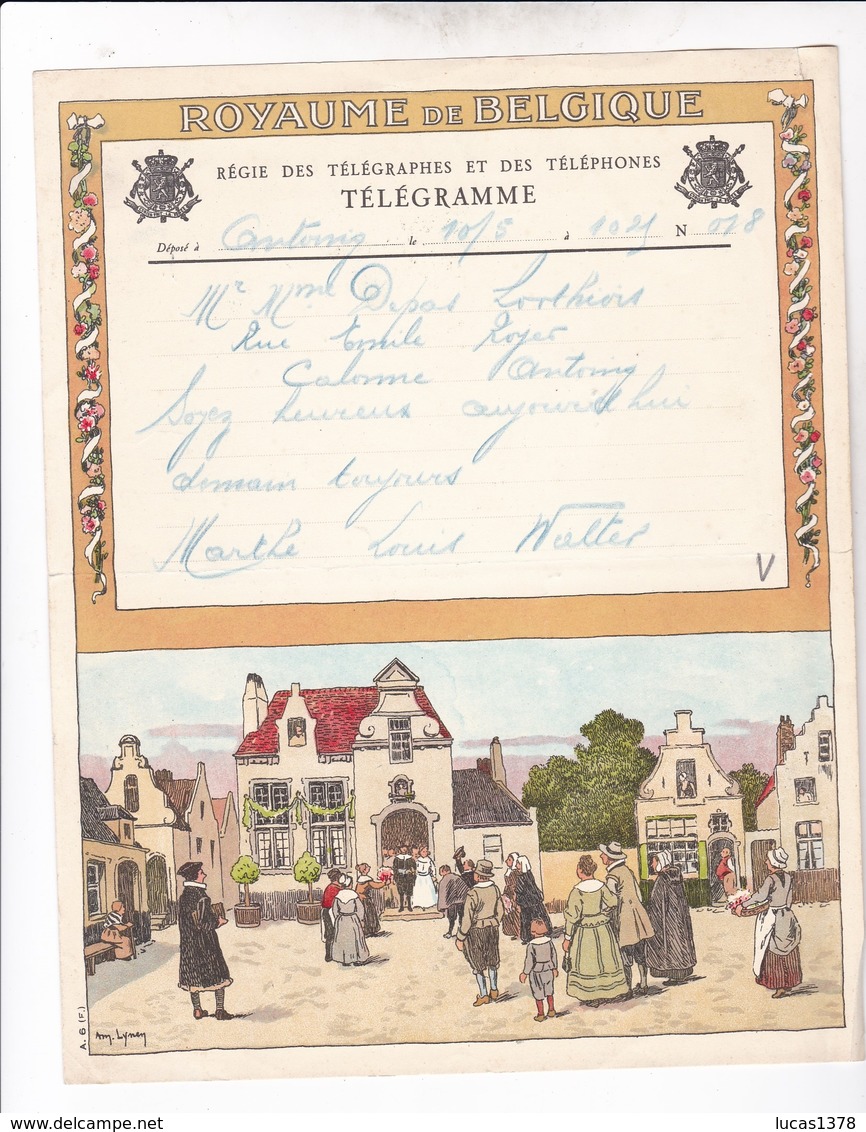 ROYAUME DE BELGIQUE
RÉGIE DES TÉLÉGRAPHES ET DES TÉLÉPHONES
TÉLÉGRAMME
Déposé à Antoing le 10/5 à 1025 N 018
Mr Mme Depas Lorthiois
Rue Emile Royer
Calonne Antoing
Soyez heureux aujourd'hui
demain toujours
Marthe Louis Walter
V
Am. Lynen
A. 6 (F.)
lucas1378